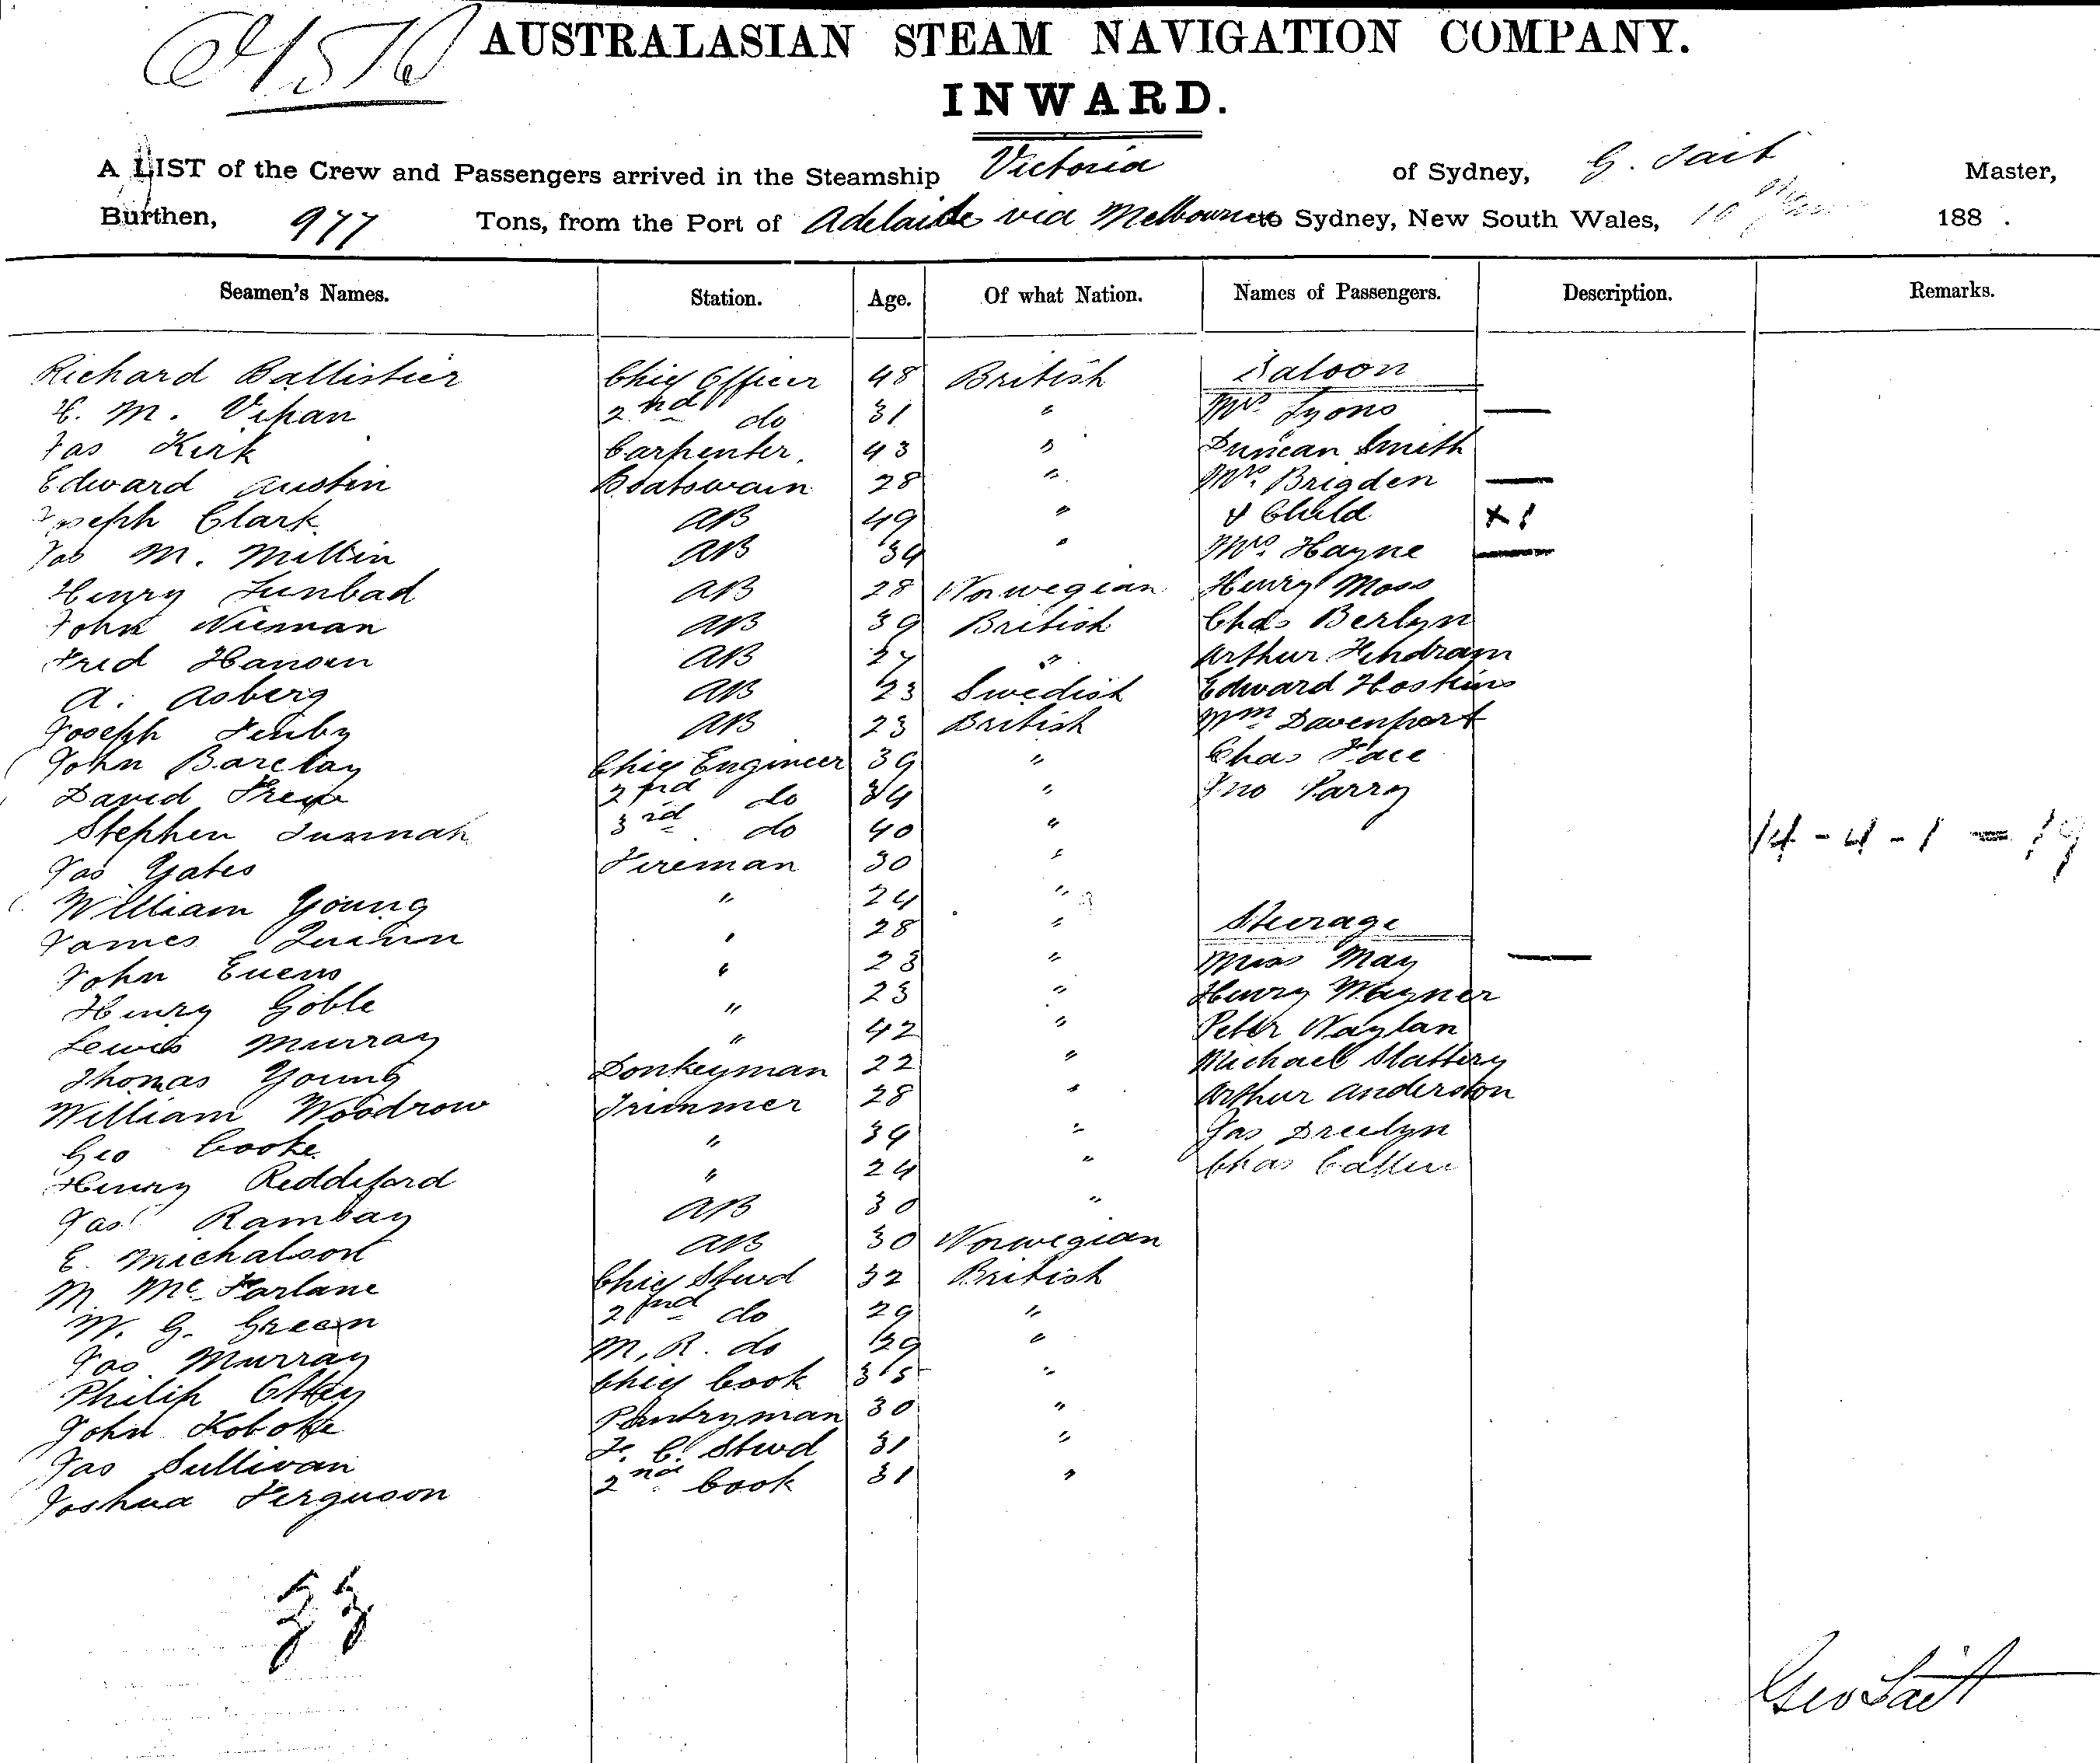 AUSTRALASIAN STEAM NAVIGATION COMPANY.
INWARD.
A LIST of the Crew and Passengers arrived in the Steamship Victoria of Sydney, G. Tait Master,
Burthen, 977 Tons, from the Port of Adelaide via Melbourne to Sydney, New South Wales, 10 188 .
Seamen's Names. Station. Age. Of what Nation. Names of Passengers. Description. Remarks.
Richard Ballistier Chief Officer 48 British Saloon
H. M. Vipan 2nd do 31 " Mrs. Lyons —
Jas Kirk Carpenter. 43 " Duncan Smith
Edward Austin Boatswain 28 " Mrs. Brigden —
Joseph Clark AB 49 " & Child x 1
Jas M. Millin AB 34 " Mrs. Hayne —
Henry Lunbad AB 28 Norwegian Henry Moss
John Nieman AB 39 British Chas Berlyn
Fred Hansen AB 27 " Arthur
A. Asberg AB 23 Swedish Edward Hoskins
Joseph Fenby AB 23 British Wm Davenport
John Barclay Chief Engineer 39 " Chas
David Frew 2nd do 34 " Jno Parry
Stephen Tunnah 3rd do 40 "
Jas Yates Fireman 30 " 14 - 4 - 1 = 19
William Young " 24 "
James Quinn " 28 " Steerage
John Evens " 23 " Miss May —
Henry Goble " 23 " Henry Wagner
Lewis Murray " 42 " Peter Naylan
Thomas Young Donkeyman 22 " Michael Slattery
William Woodrow Trimmer 28 " Arthur Anderson
Geo Cooke " 39 " Jas
Henry Reddiford " 24 " Chas
Jas Ramsay AB 30 "
E. Michalson AB 30 Norwegian
M. McFarlane Chief Stwd 32 British
W. G. Green 2nd do 29 "
Jas Murray M. R. do 29 "
Philip Ottey Chief Cook 35 "
John Koboke Pantryman 30 "
Jas Sullivan F. C. Stwd 31 "
Joshua Ferguson 2nd Cook 31 "
33
Geo Tait